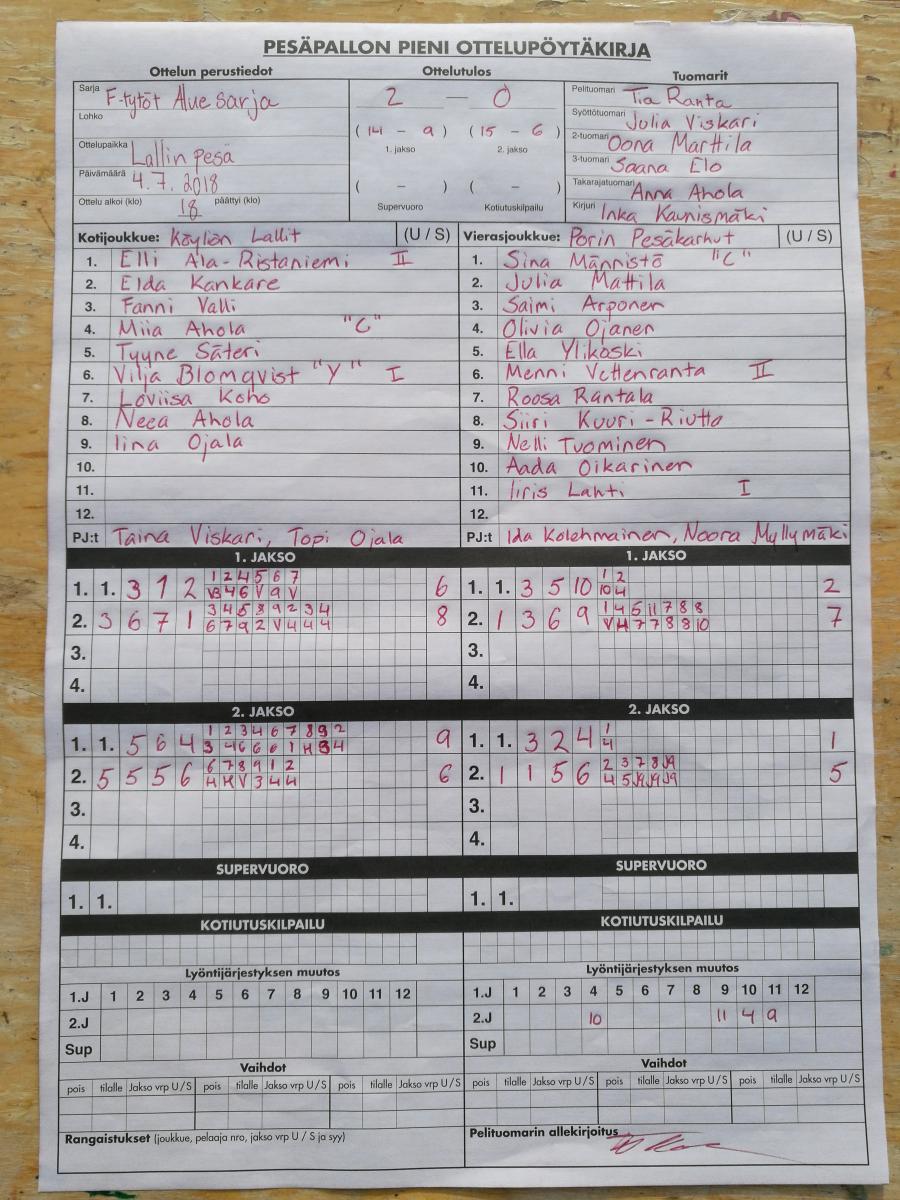 PESÄPALLON PIENI OTTELUPÖYTÄKIRJA
Ottelun perustiedot Ottelutulos Tuomarit
Sarja F-tytöt Aluesarja
Lohko
Ottelupaikka Lallin pesä
Päivämäärä 4.7.2018
Ottelu alkoi (klo) 18 päättyi (klo)
2 — 0
( 14 - 9 ) ( 15 - 6 )
1. jakso 2. jakso
( - ) ( - )
Supervuoro Kotiutuskilpailu
Pelituomari Tia Ranta
Syöttötuomari Julia Viskari
2-tuomari Oona Marttila
3-tuomari Saana Elo
Takarajatuomari Anna Ahola
Kirjuri Inka Kaunismäki
Kotijoukkue: Köyliön Lallit (U / S)
1. Elli Ala-Ristaniemi II
2. Elda Kankare
3. Fanni Valli
4. Miia Ahola "C"
5. Tyyne Säteri
6. Vilja Blomqvist "Y" I
7. Loviisa Koho
8. Neea Ahola
9. Iina Ojala
10.
11.
12.
PJ:t Taina Viskari, Topi Ojala
Vierasjoukkue: Porin Pesäkarhut (U / S)
1. Sina Männistö "C"
2. Julia Mattila
3. Saimi Arponen
4. Olivia Ojanen
5. Ella Ylikoski
6. Menni Vettenranta II
7. Roosa Rantala
8. Siiri Kuuri-Riutta
9. Nelli Tuominen
10. Aada Oikarinen
11. Iiris Lahti I
12.
PJ:t Ida Kolehmainen, Noora Myllymäki
1. JAKSO
1. 1. 3 1 2 6
1 2 4 5 6 7
2. 3 6 7 1 8
3 4 5 8 9 2 3 4
6 7 9 2 V 4 4 4
3.
4.
1. JAKSO
1. 1. 3 5 10 2
1 2
10 4
2. 1 3 6 9 7
1 4 5 11 7 8 8
3.
4.
2. JAKSO
1. 1. 5 6 4 9
1 2 3 4 6 7 8 9 2
2. 5 5 5 6 6
6 7 8 9 1 2
H H V 3 4 4
3.
4.
2. JAKSO
1. 1. 3 2 4 1
1
4
2. 1 1 5 6 5
3.
4.
SUPERVUORO
1. 1.
SUPERVUORO
1. 1.
KOTIUTUSKILPAILU
KOTIUTUSKILPAILU
Lyöntijärjestyksen muutos
1.J 1 2 3 4 5 6 7 8 9 10 11 12
2.J
Sup
Lyöntijärjestyksen muutos
1.J 1 2 3 4 5 6 7 8 9 10 11 12
2.J 10 11 4 9
Sup
Vaihdot
pois tilalle Jakso vrp U / S pois tilalle Jakso vrp U / S pois tilalle Jakso vrp U / S
Vaihdot
pois tilalle Jakso vrp U / S pois tilalle Jakso vrp U / S pois tilalle Jakso vrp U / S
Rangaistukset (joukkue, pelaaja nro, jakso vrp U / S ja syy)
Pelituomarin allekirjoitus